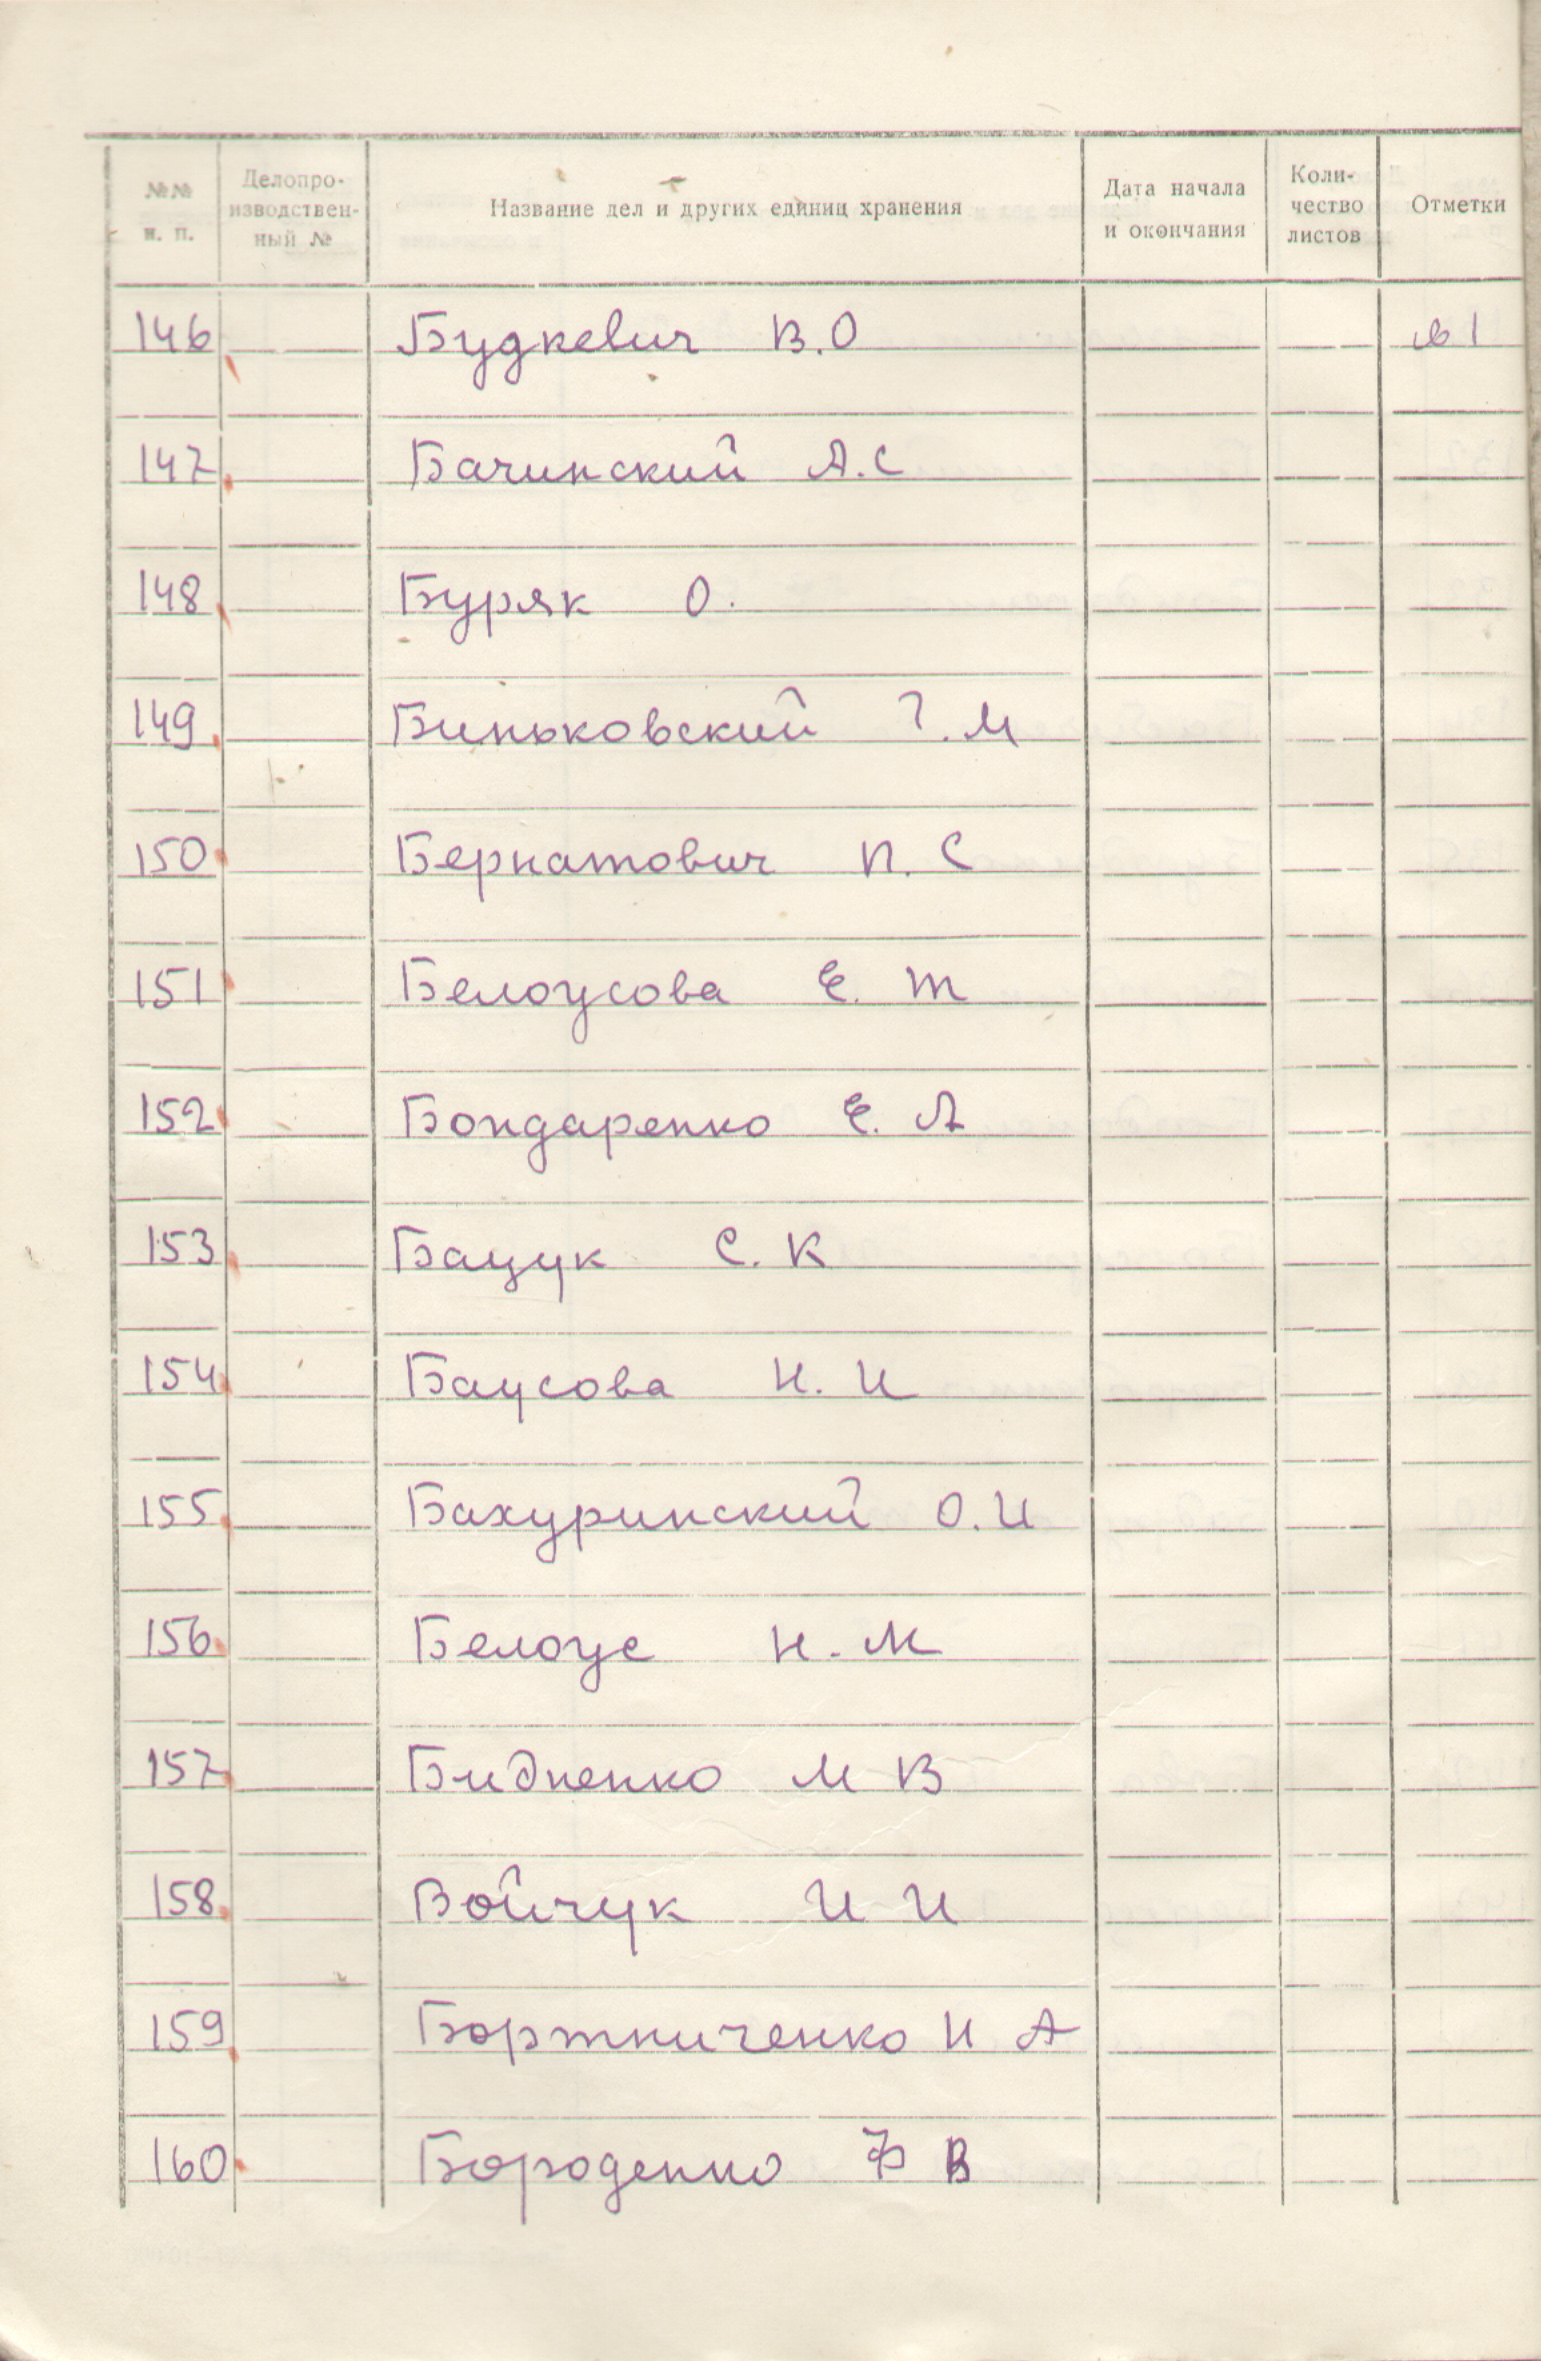 №№ н. п. Делопро-изводствен-ный № Название дел и других единиц хранения Дата начала и окончания Коли-чество листов Отметки
146 Будкевич В.О
147 Бачинский А.С
148 Буряк О.
149 Биньковский Г.М
150 Бернатович П. С
151 Белоусова Е. Т
152 Бондаренко Е. А
153 Бацук С. К
154 Баусова Н. И
155 Бахуринский О.И
156 Белоус Н. М
157 Бидненко М В
158 Войчук И И
159 Бортниченко И А
160 Бороденко Ф В